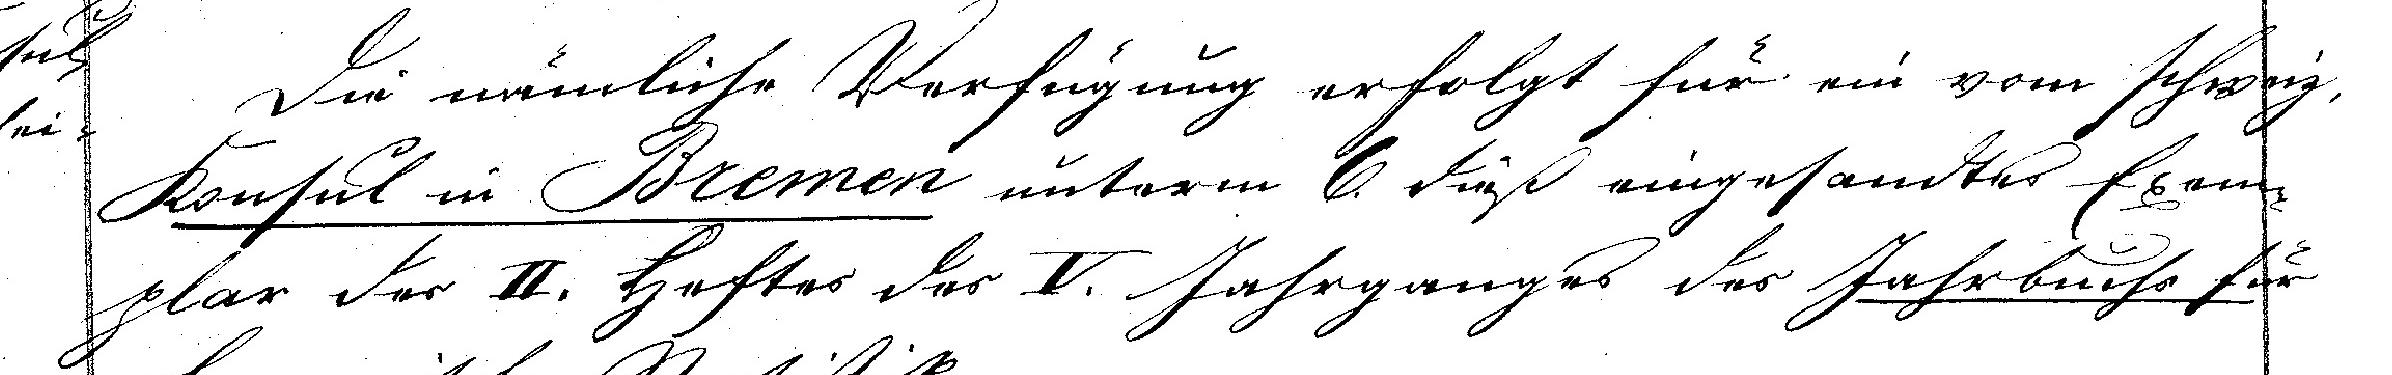 Die nämliche Verfügung erfolgt für ein vom schweiz.
Konsul in Bremen unterm 6. dieß eingesandtes Exem-
plar des II. Heftes des V. Jahrganges des Jahrbuchs für